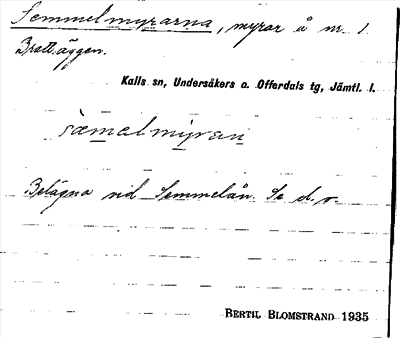 Semmelmyrarna, myrar å nr 1
Brattäggen.
Kalls sn, Undersåkers o. Offerdals tg, Jämtl. l.
sæmelmyran
Belägna vid Semmelån. Se d. o.
BERTIL BLOMSTRAND 1935